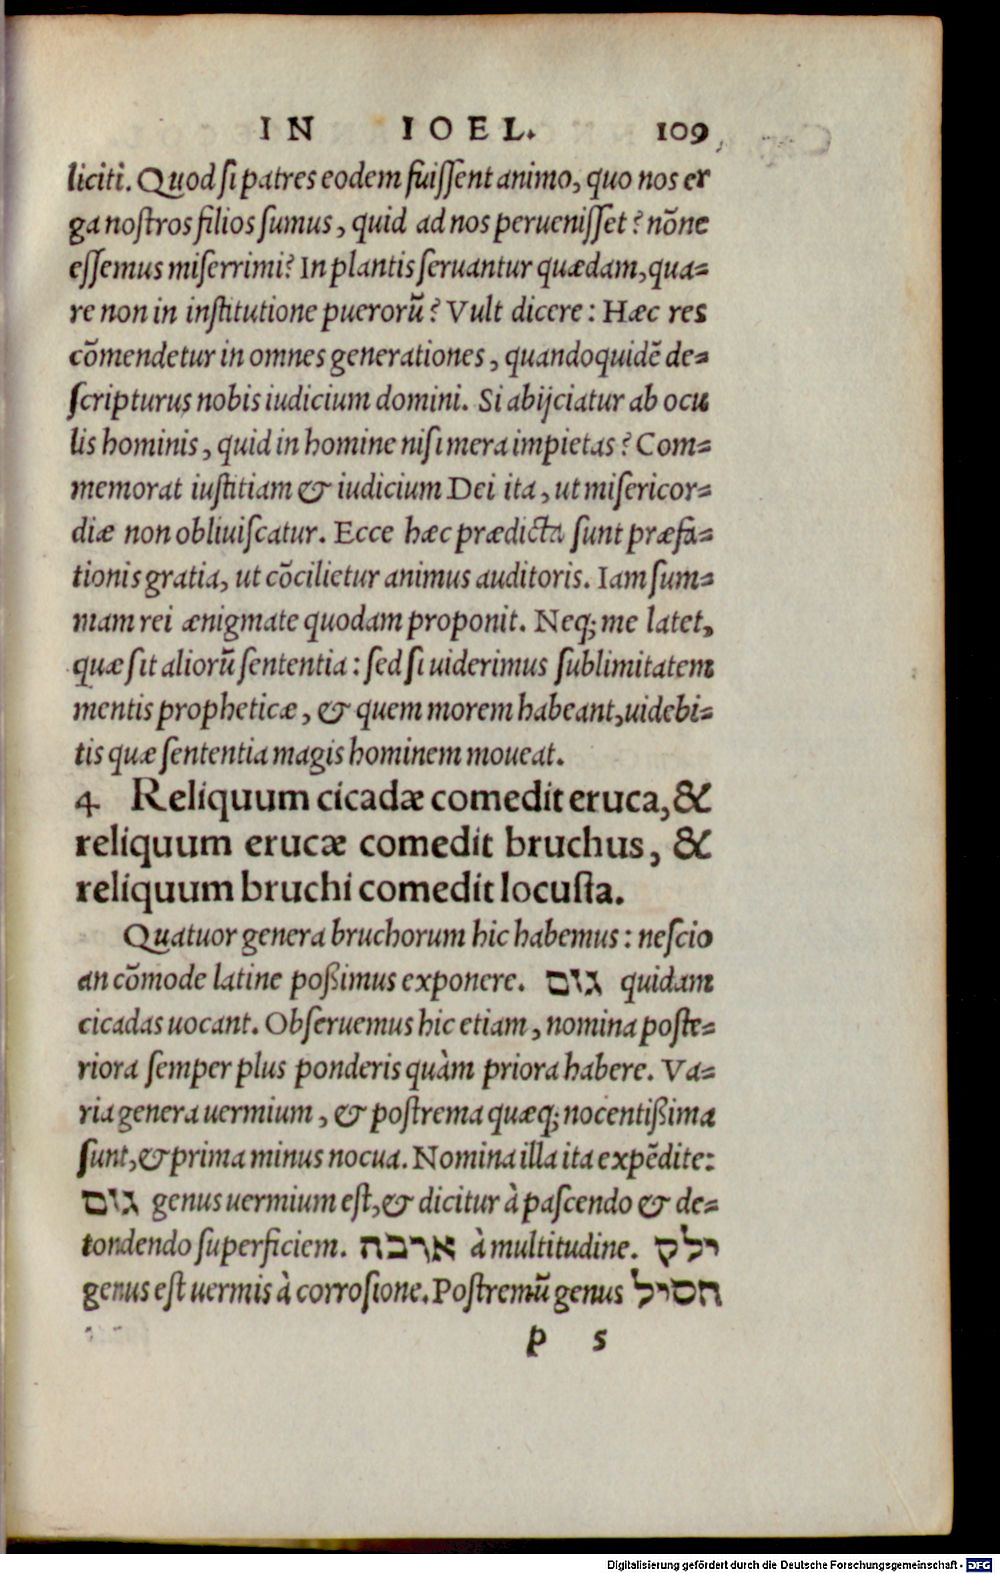 IN IOEL. 109
liciti. Quod si patres eodem fuissent animo, quo nos er
ga nostros filios sumus, quid ad nos peruenisset? nõne
essemus miserrimi? In plantis seruantur quædam, qua=
re non in institutione puerorũ? Vult dicere: Hæc res
cõmendetur in omnes generationes, quandoquidẽ de=
scripturus nobis iudicium domini. Si abijciatur ab ocu
lis hominis, quid in homine nisi mera impietas? Com=
memorat iustitiam & iudicium Dei ita, ut misericor=
diæ non obliuiscatur. Ecce hæc prædicta sunt præfa=
tionis gratia, ut cõcilietur animus auditoris. Iam sum=
mam rei ænigmate quodam proponit. Neq; me latet,
quæ sit aliorũ sententia: sed si uiderimus sublimitatem
mentis propheticæ, & quem morem habeant, uidebi=
tis quæ sententia magis hominem moueat.
4 Reliquum cicadæ comedit eruca, &
reliquum erucæ comedit bruchus, &
reliquum bruchi comedit locusta.
Quatuor genera bruchorum hic habemus: nescio
an cõmode latine poßimus exponere. גום quidam
cicadas uocant. Obseruemus hic etiam, nomina poste=
riora semper plus ponderis quàm priora habere. Va=
ria genera uermium, & postrema quæq; nocentißima
sunt, & prima minus nocua. Nomina illa ita expẽdite:
גום genus uermium est, & dicitur à pascendo & de=
tondendo superficiem. ארבה à multitudine. ילק
genus est uermis à corrosione. Postremũ genus חסיל
p s
Digitalisierung gefördert durch die Deutsche Forschungsgemeinschaft - DFG